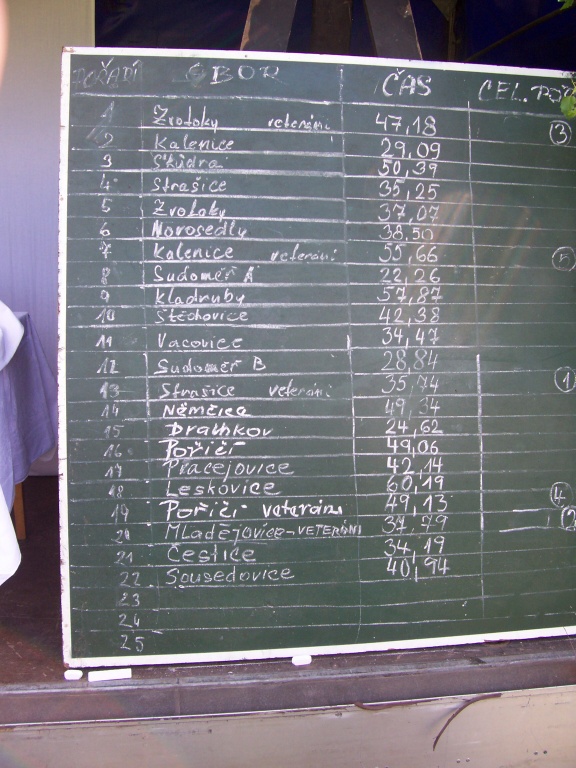 POŘADÍ SBOR ČAS CEL. POŘ
1 Zvotoky veteráni 47,18 3
2 Kalenice 29,09
3 Škůdra 50,39
4 Strašice 35,25
5 Zvotoky 37,07
6 Novosedly 38,50
7 Kalenice veteráni 55,66 5
8 Sudoměř A 22,26
9 Kladruby 57,87
10 Štěchovice 42,38
11 Vacovice 34,47
12 Sudoměř B 28,84
13 Strašice veteráni 35,74 1
14 Němčice 49,34
15 Drahkov 24,62
16 Poříčí 49,06
17 Pracejovice 42,14
18 Leskovice 60,19
19 Poříčí veteráni 49,13 4
20 Mladějovice-VETERÁNI 37,79 2
21 Čestice 34,19
22 Sousedovice 40,94
23
24
25